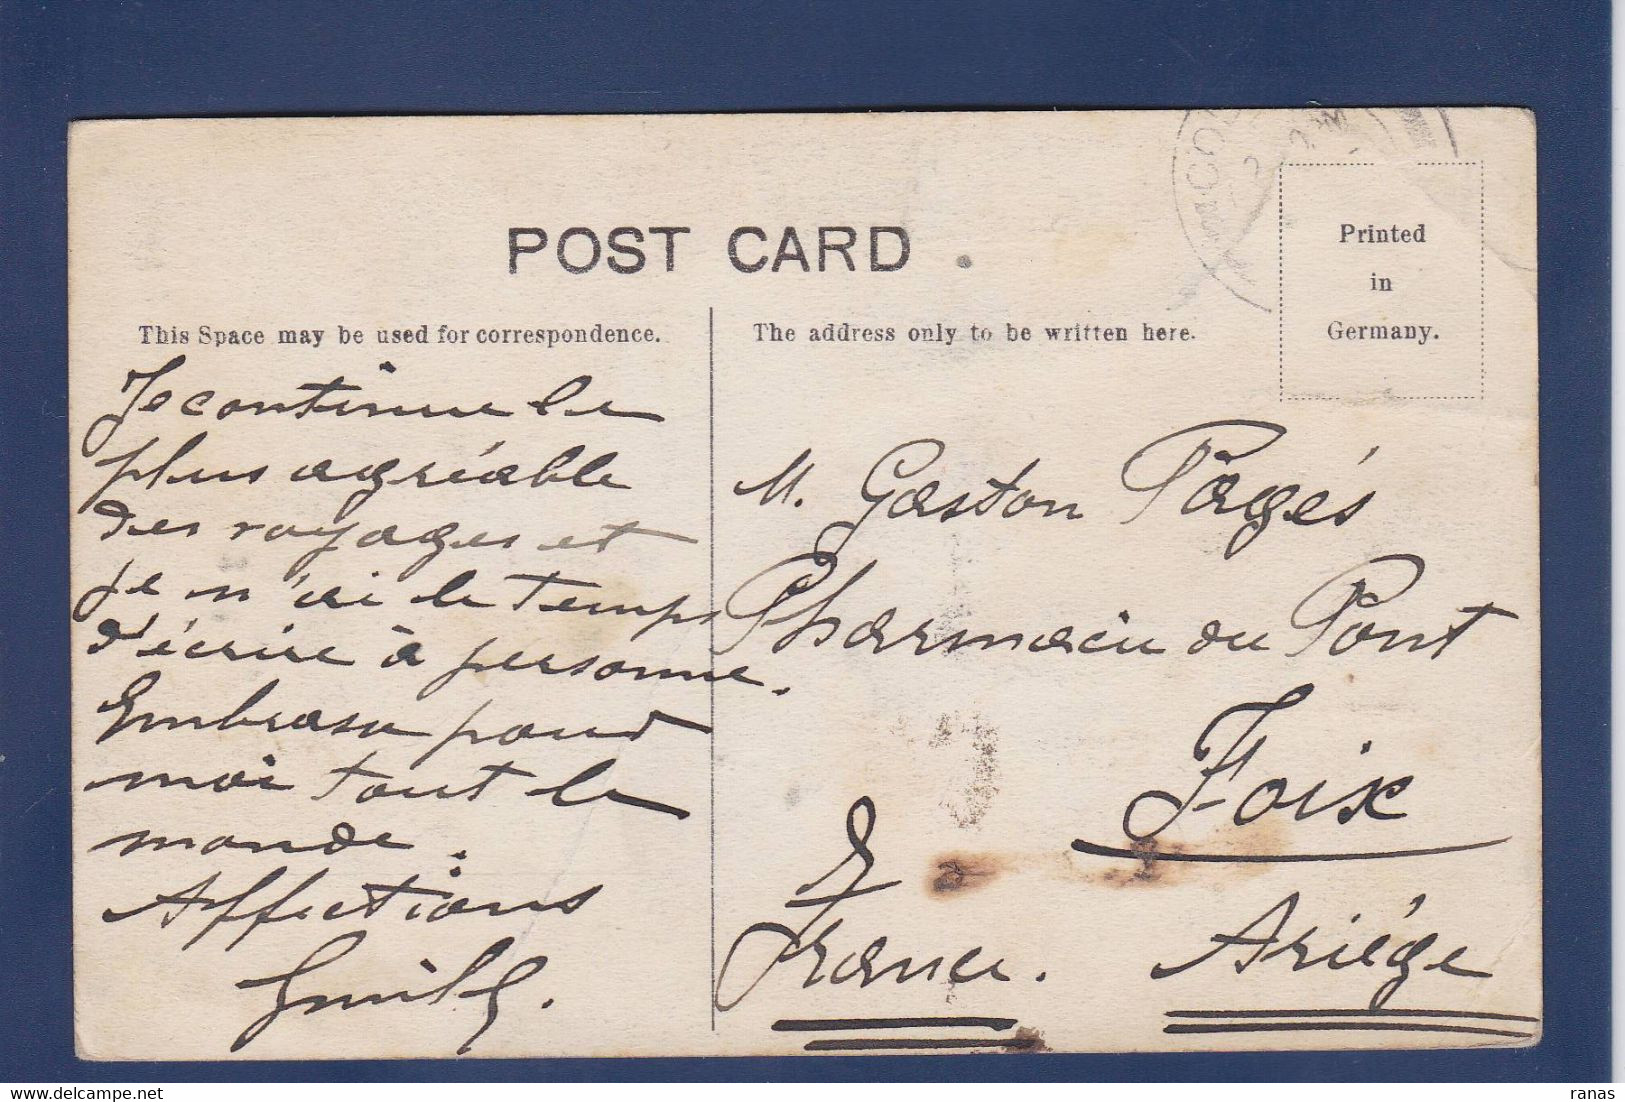 POST CARD
Printed
in
Germany.
This Space may be used for correspondence.
Je continue le
plus agréable
des voyages et
je n'ai le temps
d'écrire à personne.
Embrasse pour
moi tout le
monde.
Affections
The address only to be written here.
M. Gaston Pagés
Pharmacien du Pont
Foix
Ariége
France.
ranas